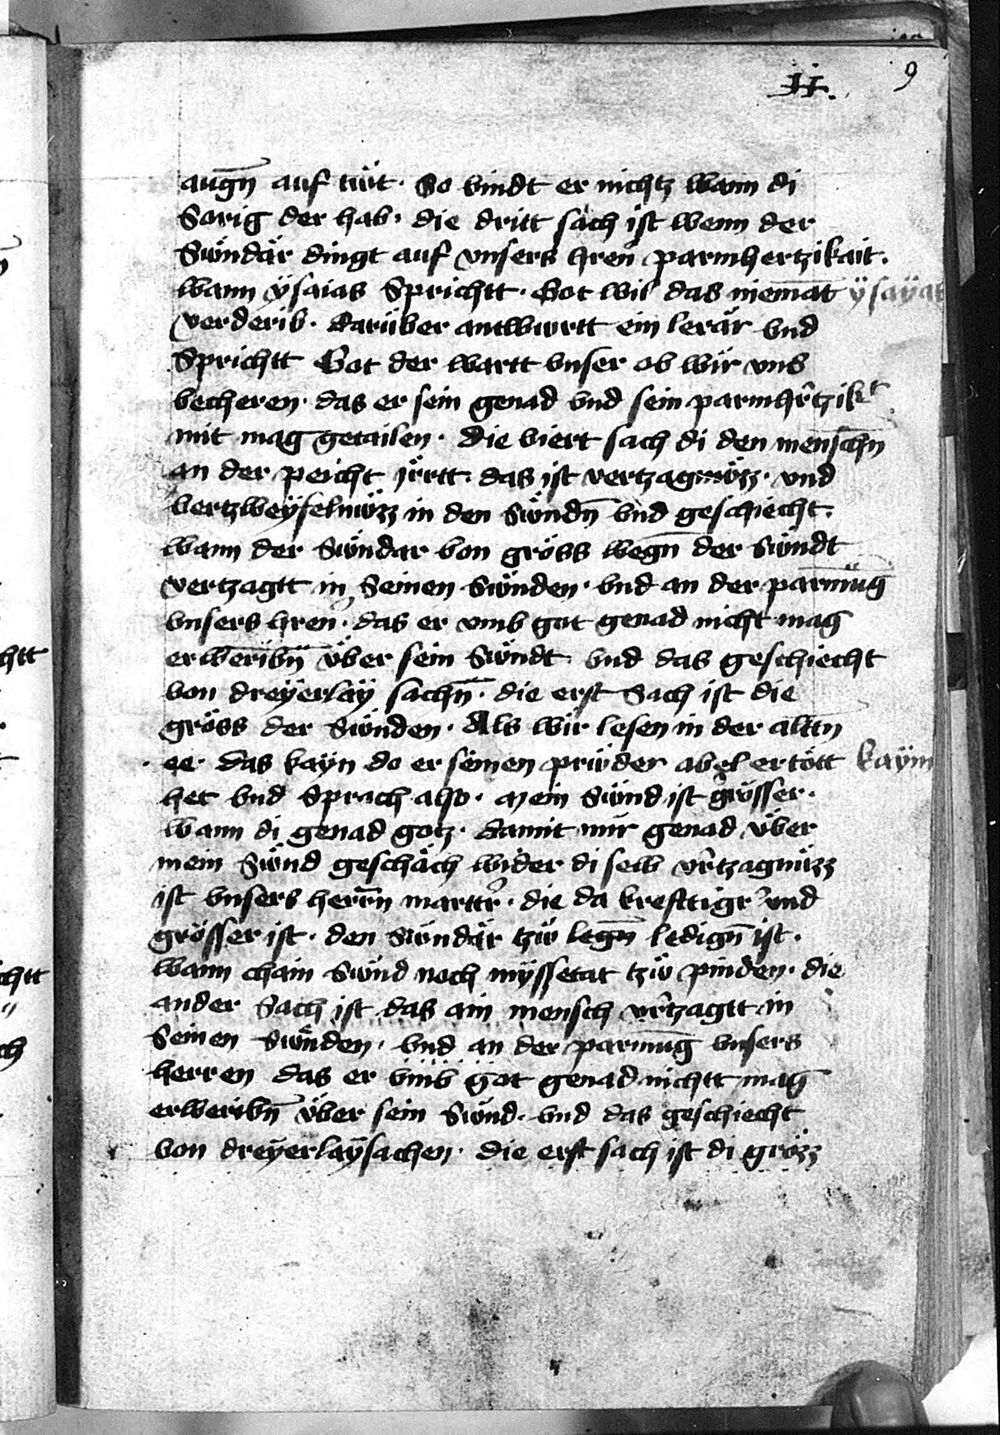 II. 9
augn̄ auf tuͤt · So vindt er nichtz wann di
Sorig der hab · die dritt sach ist wenn der
Suͤndaͤr dingt auf vnsers hren̄ parmhertzikait ·
wann ÿsaias Sprichtt · Got wil das niema͞t ÿsaÿas
verderib · daruͤber antwurtt ein leraͤr vnd
Sprichtt Got der wartt vnser ob wir vns
becheren · das er sein genad vnd sein parmhr̄tzikt
mit mag getailen · die viert sach di den mensch̄n
an der peicht irͤrtt · das ist vertzagnuͤzz · vnd
vertzweÿfelnuͤzz in den Suͤndn̄ vnd geschiecht ·
wann der Suͤndar von gröss wegn̄ der suͤndt
vertzagtt in Seinen Suͤnden · vnd an der parmu̅g
vnsers hren̄ · das er vmb got genad nicht mag
erweribn̄ uͤber sein Suͤndt · vnd das geschiecht
von dreÿerlaÿ sachn̄ · die erst Sach ist die
gröss der Suͤnden · Als wir lesen in der altn̄
ee · das kaÿn do er seinen pruͤder abel ertött kaÿm
het vnd Sprach also · Mein Suͤnd ist grösser ·
wann di genad gotz · damit mir genad uͤber
mein Suͤnd geschäch wider di selb vr̄tzagnuͤzz
ist vnsers herrn̄ marttr̄ · die da krefttigr̄ vnd
grösser ist · den Suͤndaͤr tzuͤ legn̄ ledign̄ ist ·
wann chain Suͤnd noch mÿssetat tzuͤ pinden · die
ander Sach ist das ain mensch vr̄tzagtt in
Seinen Suͤnden · vnd an der parmu̅g vnsers
herren das er vmb got genad nichtt mag
erweribn̄ uͤber sein Suͤnd · vnd das geschiecht
von dreÿerlaÿ sachen · die erst sach ist di grözz